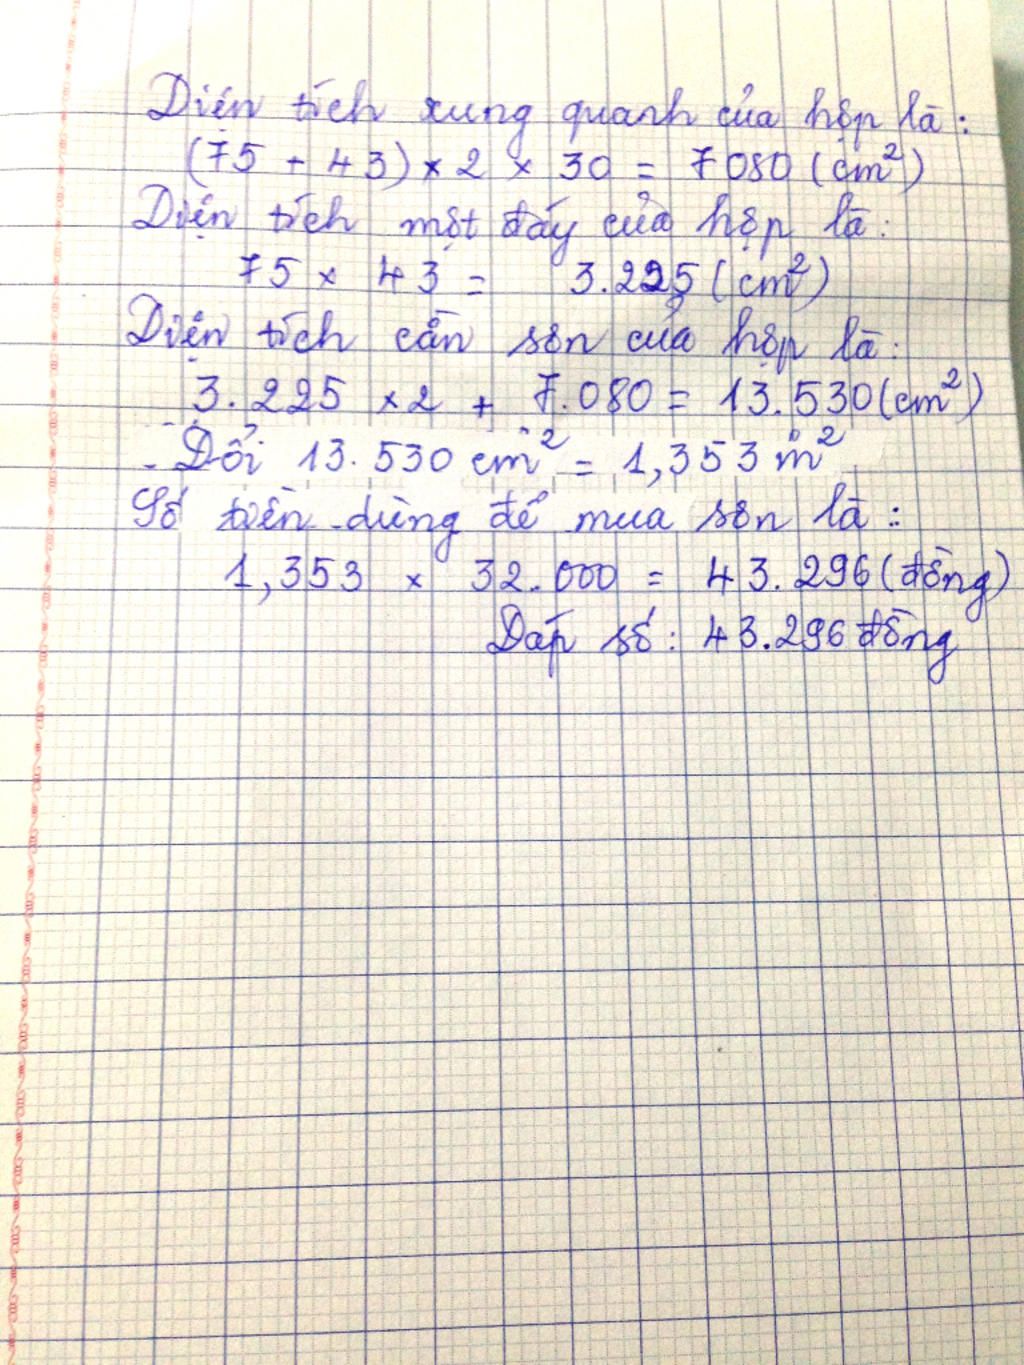 Diện tích xung quanh của hộp là:
(75 + 43) × 2 × 30 = 7080 (cm²)
Diện tích một đáy của hộp là:
75 × 43 = 3.225 (cm²)
Diện tích cần sơn của hộp là:
3.225 × 2 + 7.080 = 13.530 (cm²)
- Đổi 13.530 cm² = 1,353 m²
Số tiền dùng để mua sơn là:
1,353 × 32.000 = 43.296 (đồng)
Đáp số: 43.296 đồng